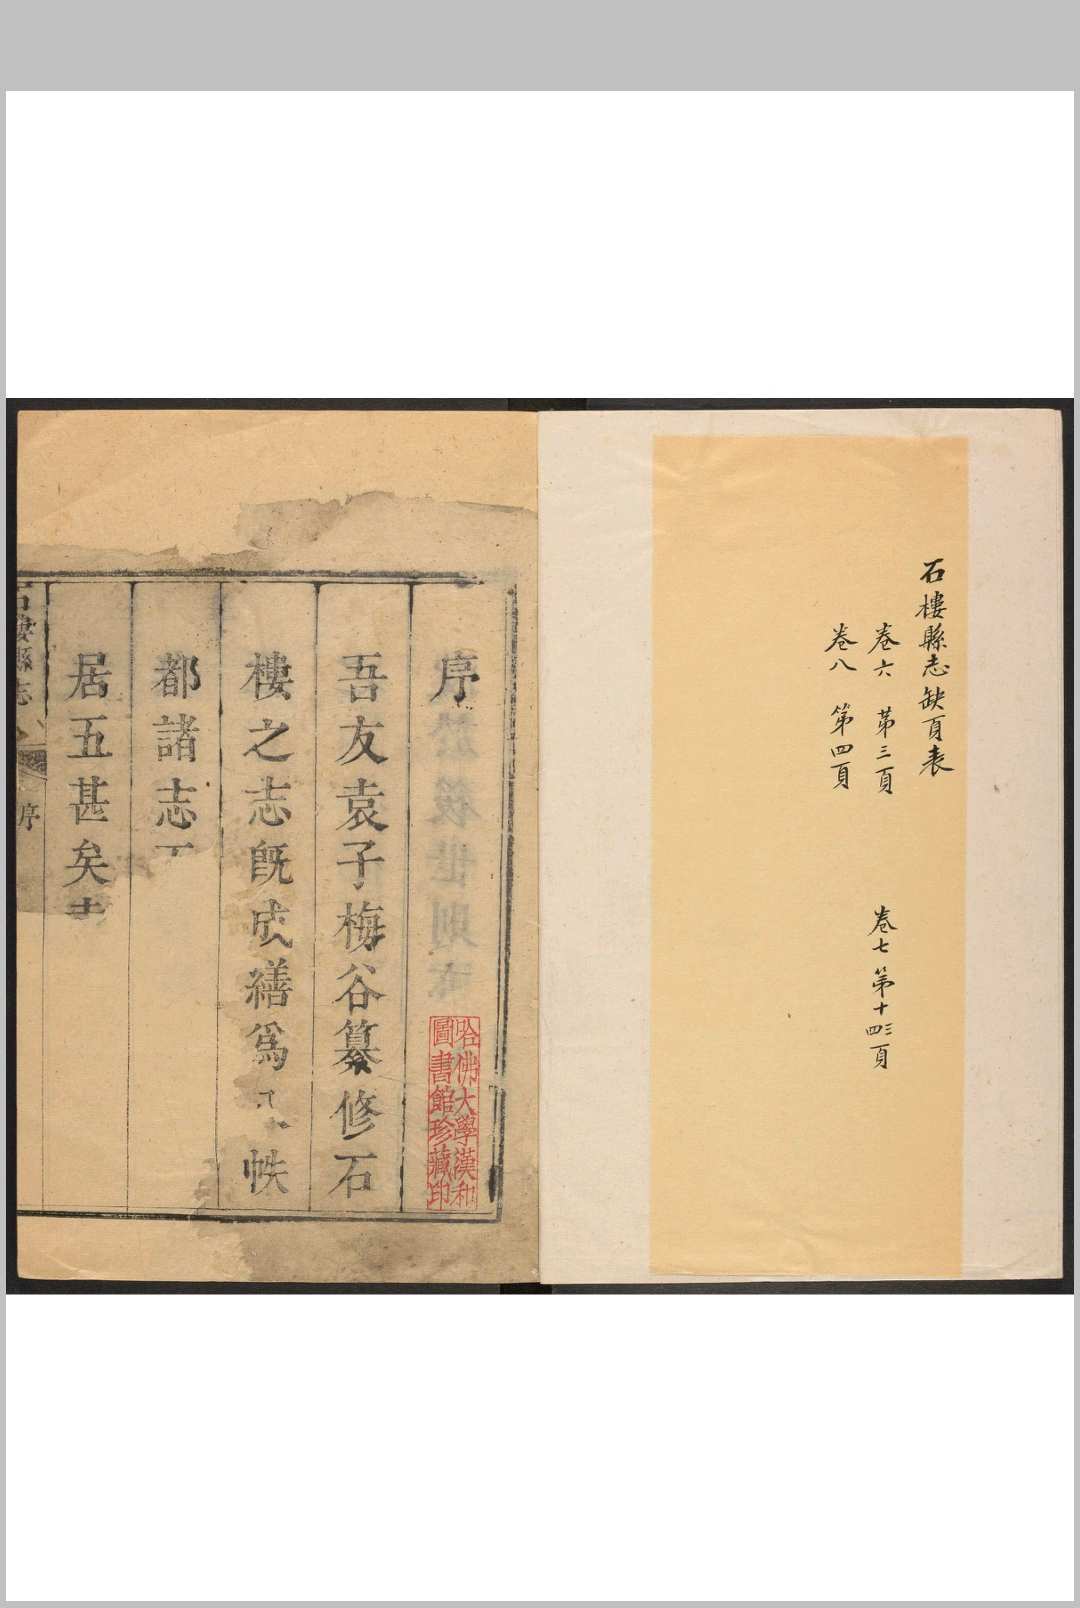 石樓縣志缺頁表
卷六 第三頁
卷七 第十三四頁
卷八 第四頁
序
吾友袁子梅谷纂修石
樓之志旣成繕爲 帙
都諸志
居五甚矣
石樓縣志
序
哈佛大學漢和
圖書館珍藏印